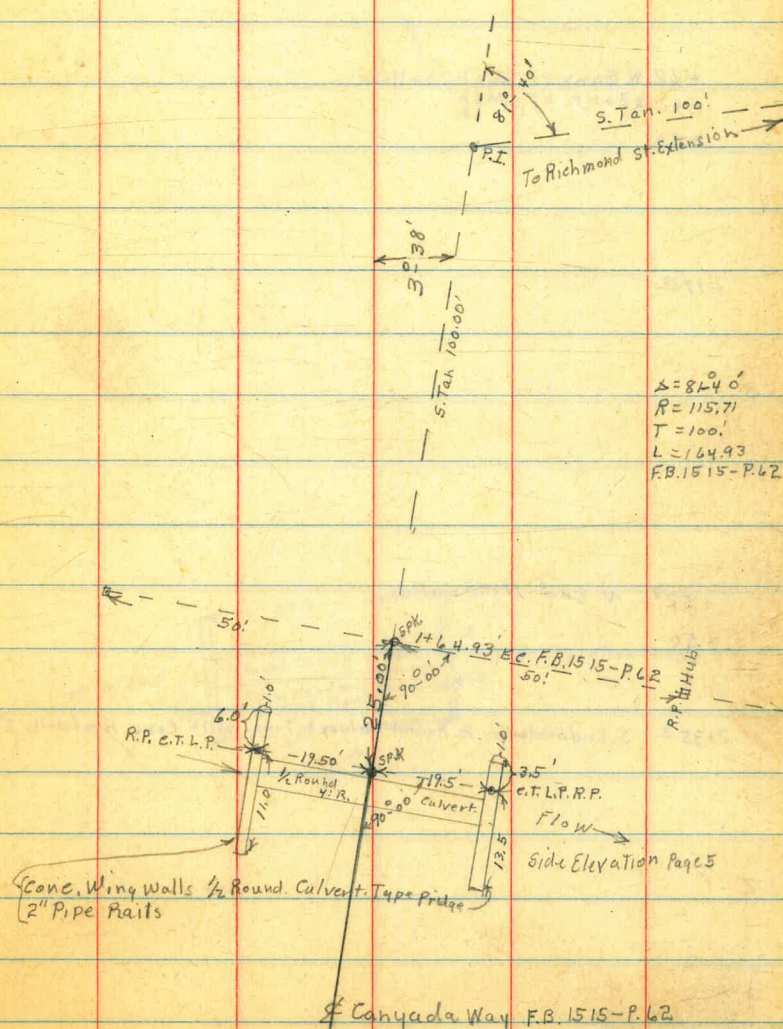 81°-40'
S. Tan. 100'
P.I.
To Richmond St. Extension
3°38'
S. Tan 100.00'
Δ = 81-40°'
R = 115.71
T = 100.'
L = 164.93
F.B. 1515-P.62
50'
SPK
1+64.93' E.C. F.B. 1515-P.62
50'
90-00'
R.P. Hub
25.00'
1.0'
6.0'
R.P. C.T.L.P.
-19.50'
SPK
1.0'
3.5'
19.5'-
C.T.L.P. R.P.
1/2 Round
4' R.
Culvert.
11.0
90°-00'
Flow
13.5
Side Elevation Page 5
Conc. Wing walls 1/2 Round. Culvert. Type Bridge
2" Pipe Rails
℄ Canyada Way F.B. 1515-P.62